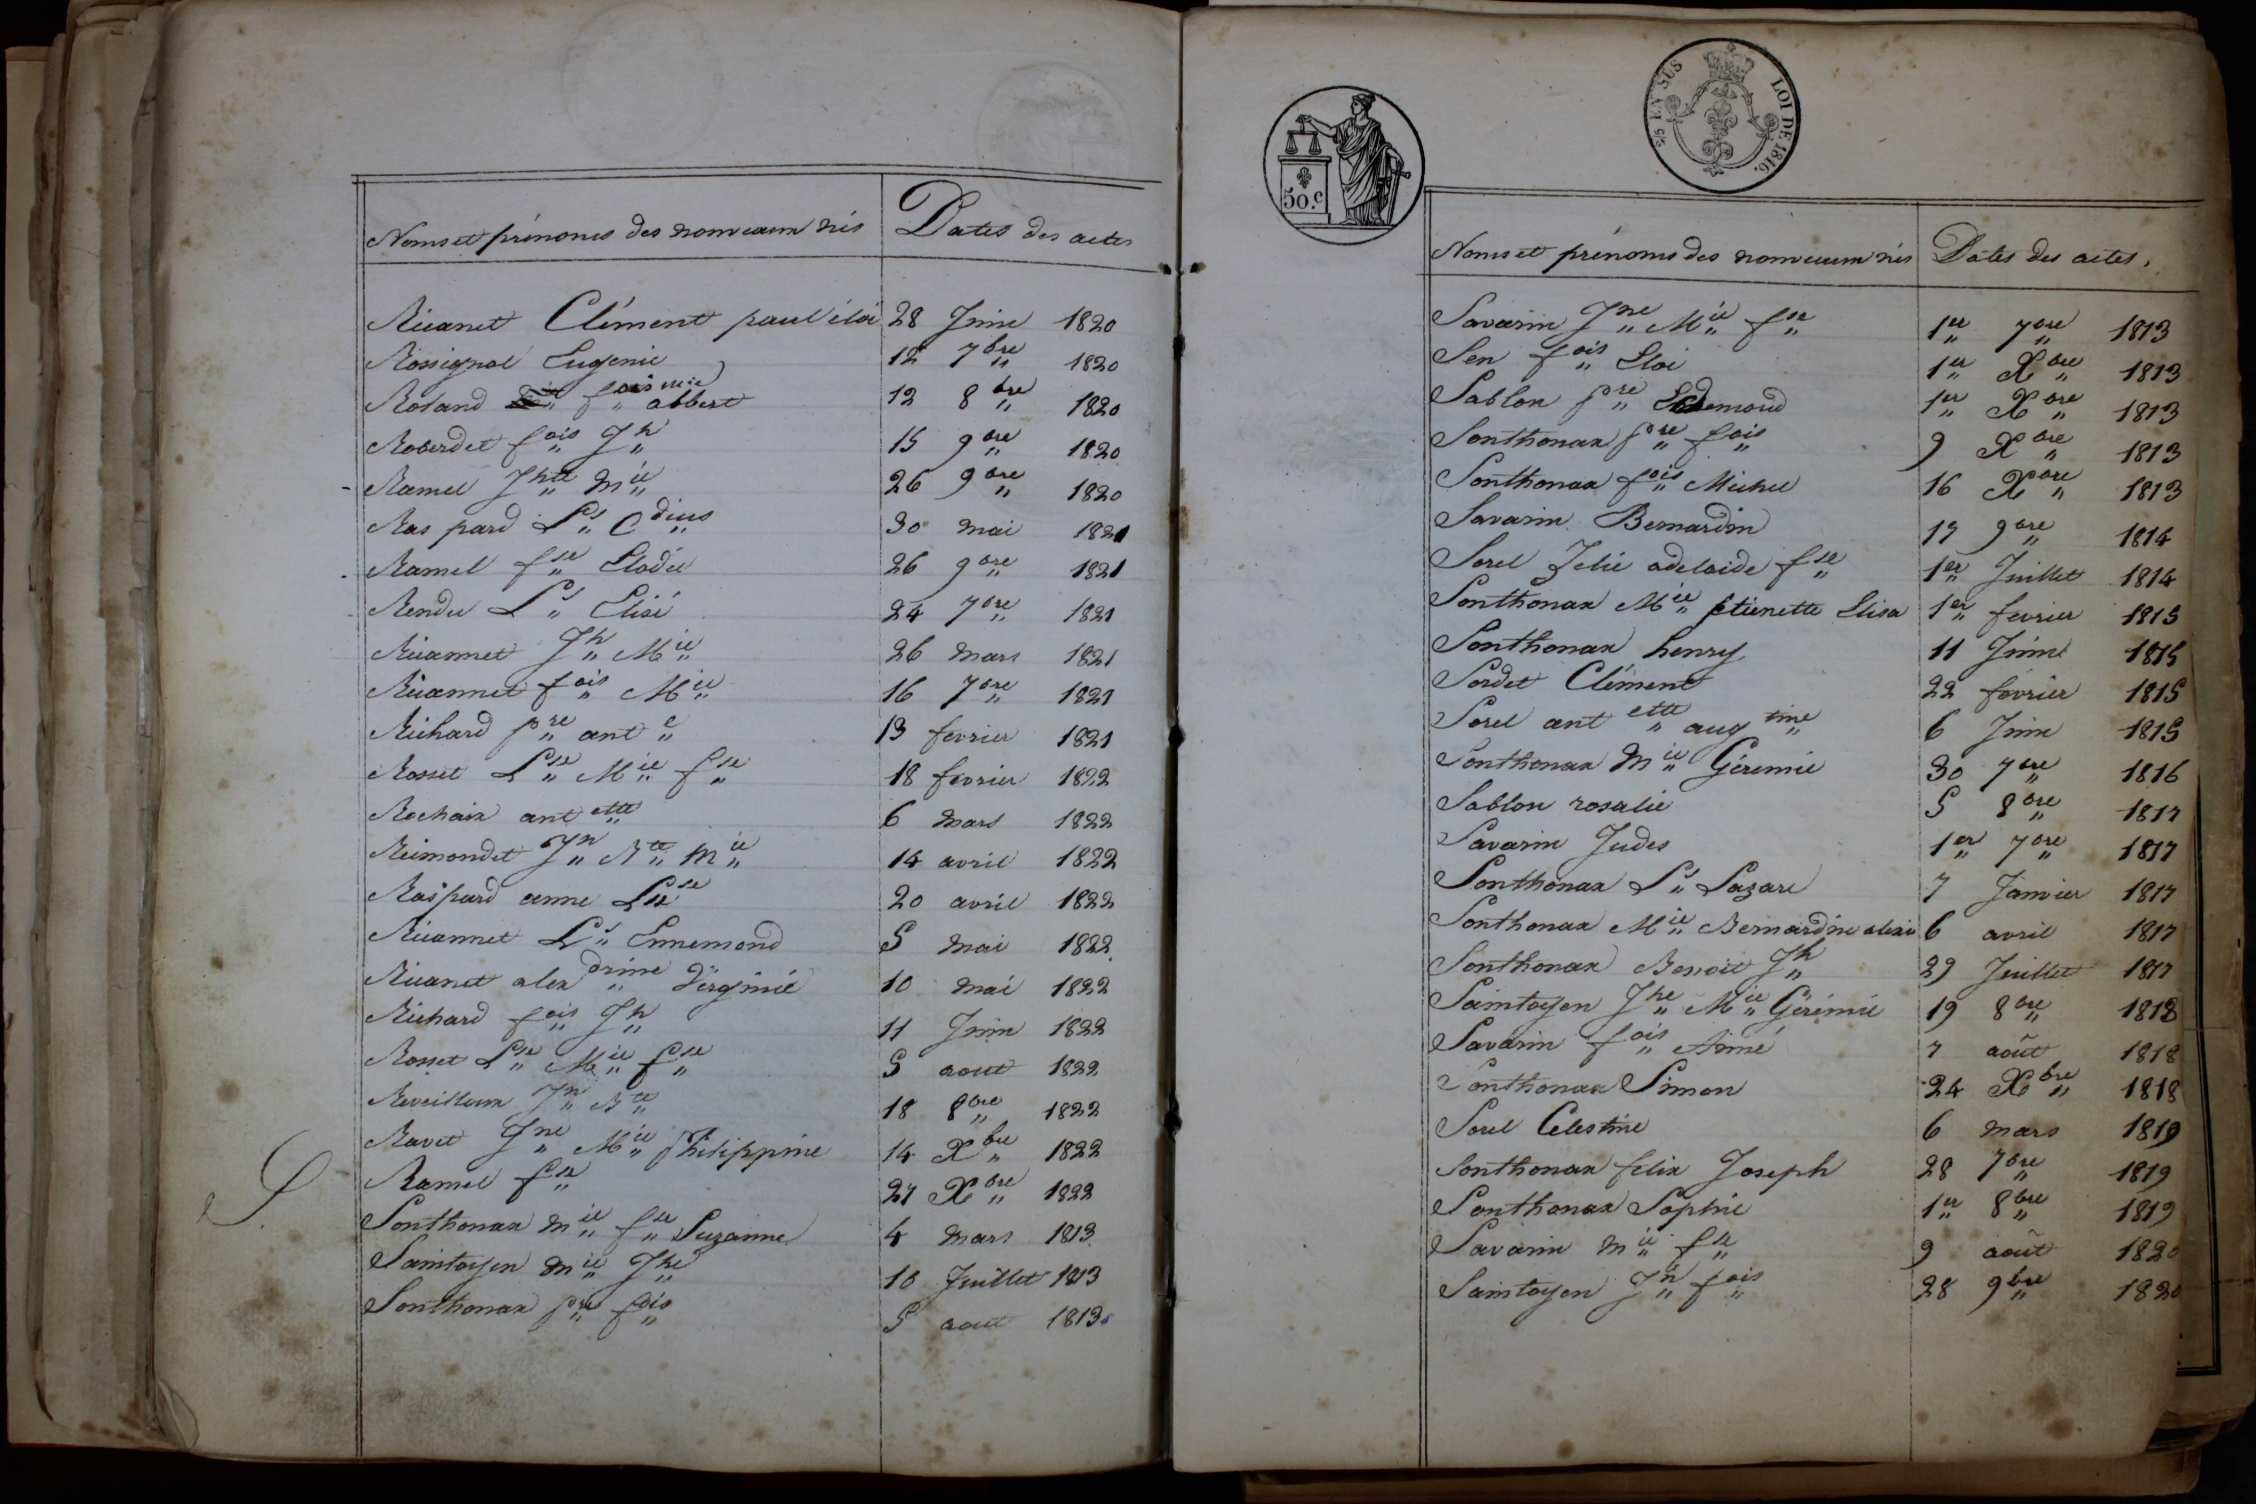 Noms et prénoms des nouveaux nés Dates des actes
Ruanet Clément paul éloi 28 Juin 1820
Rossignol Eugenie 12 7bre 1820
Roland fois mie albert 12 8bre 1820
Roberdet fois Jh 15 9bre 1820
Ramel Jhtte Mie 26 9bre 1820
Raspard Ls Cdius 30 mai 1821
Ramel fse Elodie 26 9bre 1821
Rendu Ls Elisé 24 7bre 1821
Ruannet Jh Mie 26 mars 1821
Ruannet fois Mie 16 7bre 1821
Richard pre ante 13 fevrier 1821
Rosset Lse Mie fse 18 fevrier 1822
Rochaix antette 6 mars 1822
Reimondet Jn Bte Mie 14 avril 1822
Raspard anne Lse 20 avril 1822
Ruannet Ls Ennemond 5 mai 1822
Ruanet alexdrine Virginie 10 mai 1822
Richard fois Jh 11 Juin 1822
Rosset Lse Mie fse 5 aout 1822
Reveilloux Jn Bte 18 8bre 1822
Ravet Jne Mie Philippine 14 Xbre 1822
Ramel fse 27 Xbre 1822
S.
Sonthonax Mie fse Suzanne 4 mars 1813
Saintoyen Mie Jhe 10 Juillet 1813
Sonthonax pre fois 5 aout 1813
50.c
2/5 EN SUS LOI DE 1816.
Noms et prénoms des nouveaux nés Dates des actes.
Savarin Jne Mie fse 1er 7bre 1813
Sen fois Eloi 1er Xbre 1813
Sablon pre Edemond 1er Xbre 1813
Sonthonax pre fois 9 Xbre 1813
Sonthonax fois Michel 16 Xbre 1813
Savarin Bernardin 17 9bre 1814
Sorel Zelie adelaide fse 1er Juillet 1814
Sonthonax Mie etienette Elisa 1er fevrier 1815
Sonthonax henry 11 Juin 1815
Sordet Clément 22 fevrier 1815
Sorel antette augtine 6 Juin 1815
Sonthonax Mie Géremie 30 7bre 1816
Sablon rosalie 5 8bre 1817
Savarin Judes 1er 7bre 1817
Sonthonax Ls Lazare 7 Janvier 1817
Sonthonax Mie Bernardine alexie 6 avril 1817
Sonthonax Benoit Jh 29 Juillet 1817
Saintoyen Jhe Mie Gérémie 19 8bre 1818
Savarin fois Aimé 7 août 1818
Sonthonax Simon 24 Xbre 1818
Sorel Celestine 6 mars 1819
Sonthonax felix Joseph 28 7bre 1819
Sonthonax Sophie 1er 8bre 1819
Savarin Mie fse 9 août 1820
Saintoyen Jn fois 28 9bre 1820